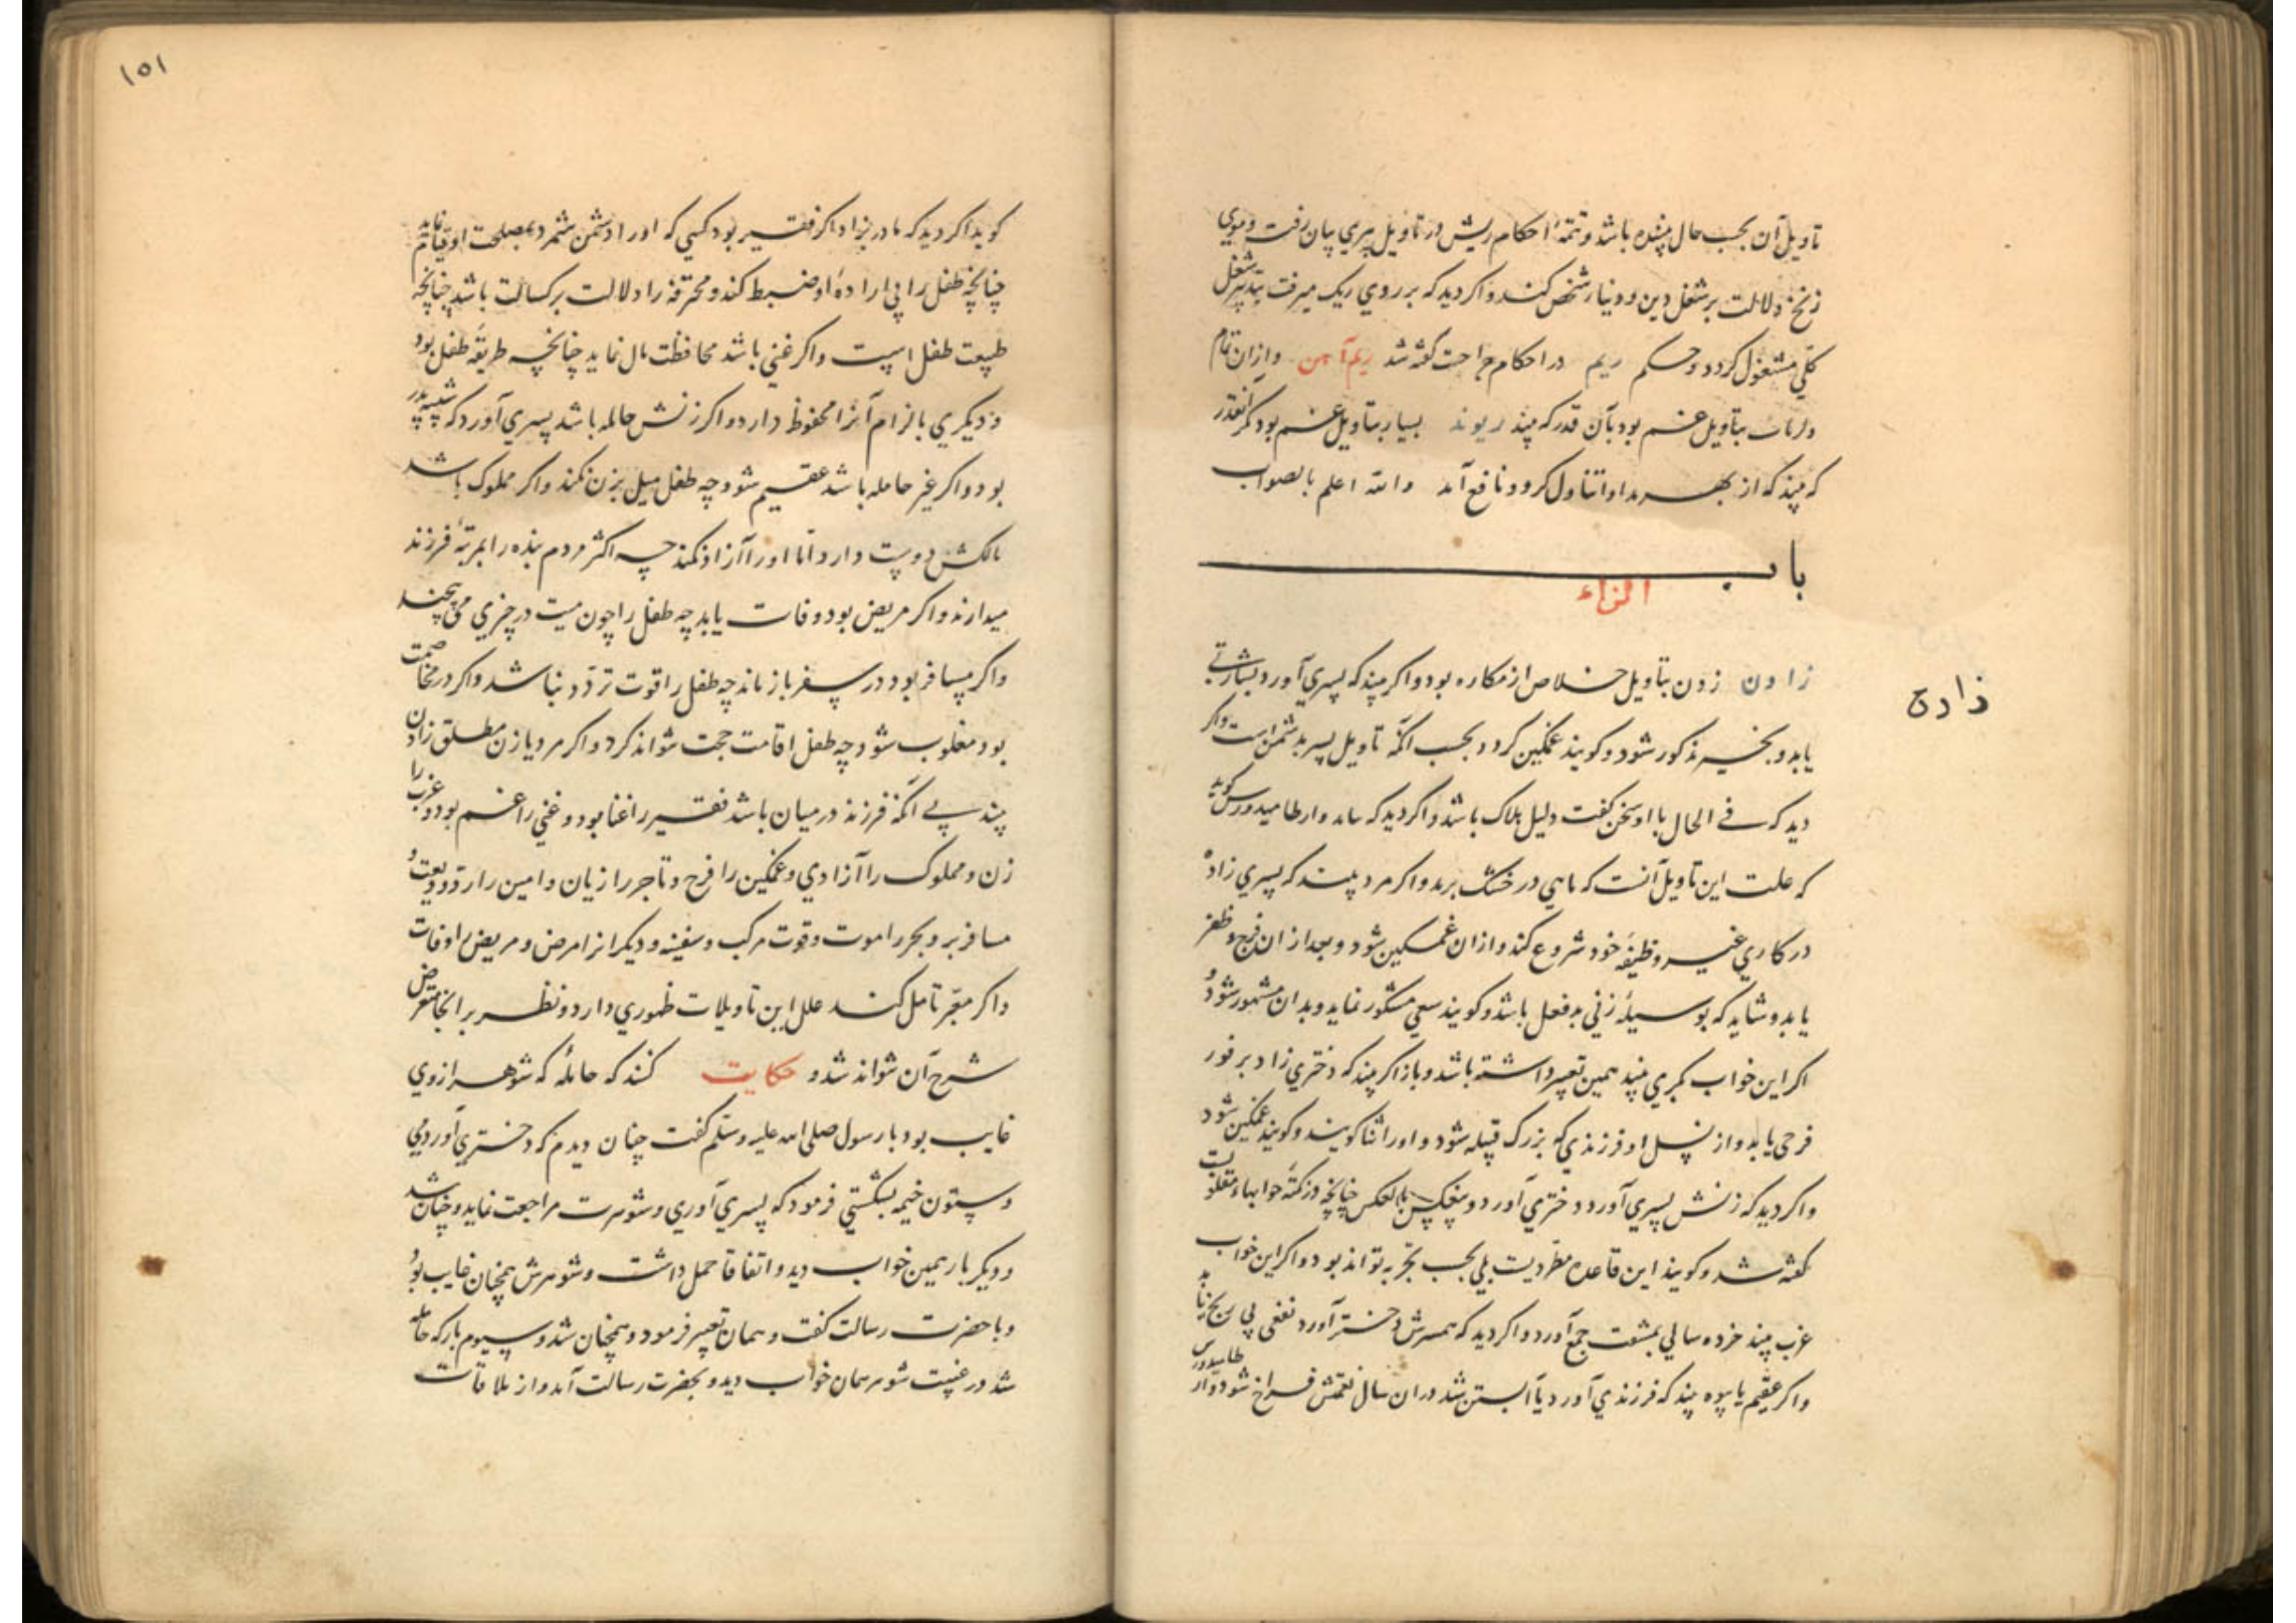 تاویل آن بحسب حال بیننده باشد و تتمهٔ احکام ریش در تاویل پیری بیان رفت و موی
زنخ دلالت بر شغل دین و دنیا شخص کند و اکر دید که بر روی ریک میرفت بشغل
کلّی مشغول کردد و حکم ریم در احکام جراحت کفته شد ریم آهن وازان تمام
بتاویل غم بود بآن قدر که بیند ریوند بسیار بتاویل غم بود مکر آنقدر
که بیند که از بهر مداوا تناول کرد و نافع آمد والله اعلم بالصواب
باب
الزاء
زادن زدن بتاویل خلاص از مکاره بود و اکر بیند که پسری آورد بشارتی
یابد و بخیر مذکور شود و کویند غمکین کردد بحسب آنکه تاویل پسر بدشمن است واکر
دید که فی الحال با او سخن کفت دلیل هلاک باشد و اکر دید که کوید
که علت این تاویل آنست که ماهی در خشک برید و اکر مرد بیند که پسری زاده
در کاری غیر وظیفهٔ خود شروع کند وازان غمکین شود و بعد از ان فرج و ظفر
یابد و شاید که بوسیلهٔ زنی بدفعل باشد و کویند سعی مشکور نماید و بدان مشهور شود و
اکر این خواب بکری بیند همین تعبیر داشته باشد و باز اکر بیند که دختری زاد بر فور
فرحی یابد و از نسل او فرزندی که بزرک قبیله شود و اورا ثنا کویند و کویند غمکین شود
واکر دید که زنش پسری آورد دختری آورد و بالعکس چنانچه در نکتهٔ خوابهاء مقلوب
کفته شد و کویند این قاعده مطّرد نیست بلی بحسب تجربه تواند بود و اکر این خواب
عزب بیند خرده سالی بمشقت جمع آورد و اکر دید که همسرش دختر آورد نفعی بی رنج یابد
واکر عقیم یا بیوه بیند که فرزندی آورد یا آبستن شد دران سال نعمتش فراخ شود و
زادن
۱۵۱
کوید اکر دید که مادر بزاد اکر فقیر بود کسی که اورا دشمن شمرد بمصلحت او قیام نماید
چنانچه طفل را بی ارادهٔ او ضبط کند و محترفه را دلالت بر کسالت باشد چنانچه
طبیعت طفل است و اکر غنی باشد محافظت مال نماید چنانچه طریقهٔ طفل بود
و دیکری بالزام آنرا محفوظ دارد و اکر زنش حامله باشد پسری آورد که شبیه پدر
بود و اکر غیر حامله باشد عقیم شود چه طفل میل بزن نکند و اکر مملوک باشد
مالکش دوست دارد امّا اورا آزاد نکند چه اکثر مردم بنده را بمرتبهٔ فرزند
میدارند و اکر مریض بود وفات یابد چه طفل را چون میت در چیزی می پیچند
واکر مسافر بود در سفر باز ماند چه طفل را قوت تردّد نباشد و اکر در مخاصمت
بود مغلوب شود چه طفل اقامت حجت نتواند کرد و اکر مرد یا زن مطلق زادن
بیند بی آنکه فرزند در میان باشد فقیر را غنا بود و غنی را غم بود و عزب را
زن و مملوک را آزادی و غمکین را فرح و تاجر را زیان و امین را ردّ ودیعت و
مسافر بر و بحر را موت و قوت مرکب و سفینه و دیکرانرا مرض و مریض را وفات
واکر معبّر تامل کند علل این تاویلات ظهوری دارد و نظر بر ایجاز متعرض
شرح آن نتواند شد و حکایت کنند که حاملهٔ که شوهر از وی
غایب بود با رسول صلی الله علیه وسلم کفت چنان دیدم که دختری آوردمی
و ستون خیمه بشکستی فرمود که پسری آوری و شوهرت مراجعت نماید و چنان شد
و دیکر بار همین خواب دید و اتفاقا حمل داشت و شوهرش همچنان غایب بود
و با حضرت رسالت کفت و همان تعبیر فرمود و همچنان شد و سیوم بار که حامله
شد در غیبت شوهر همان خواب دید و بحضرت رسالت آمد و از ملاقات